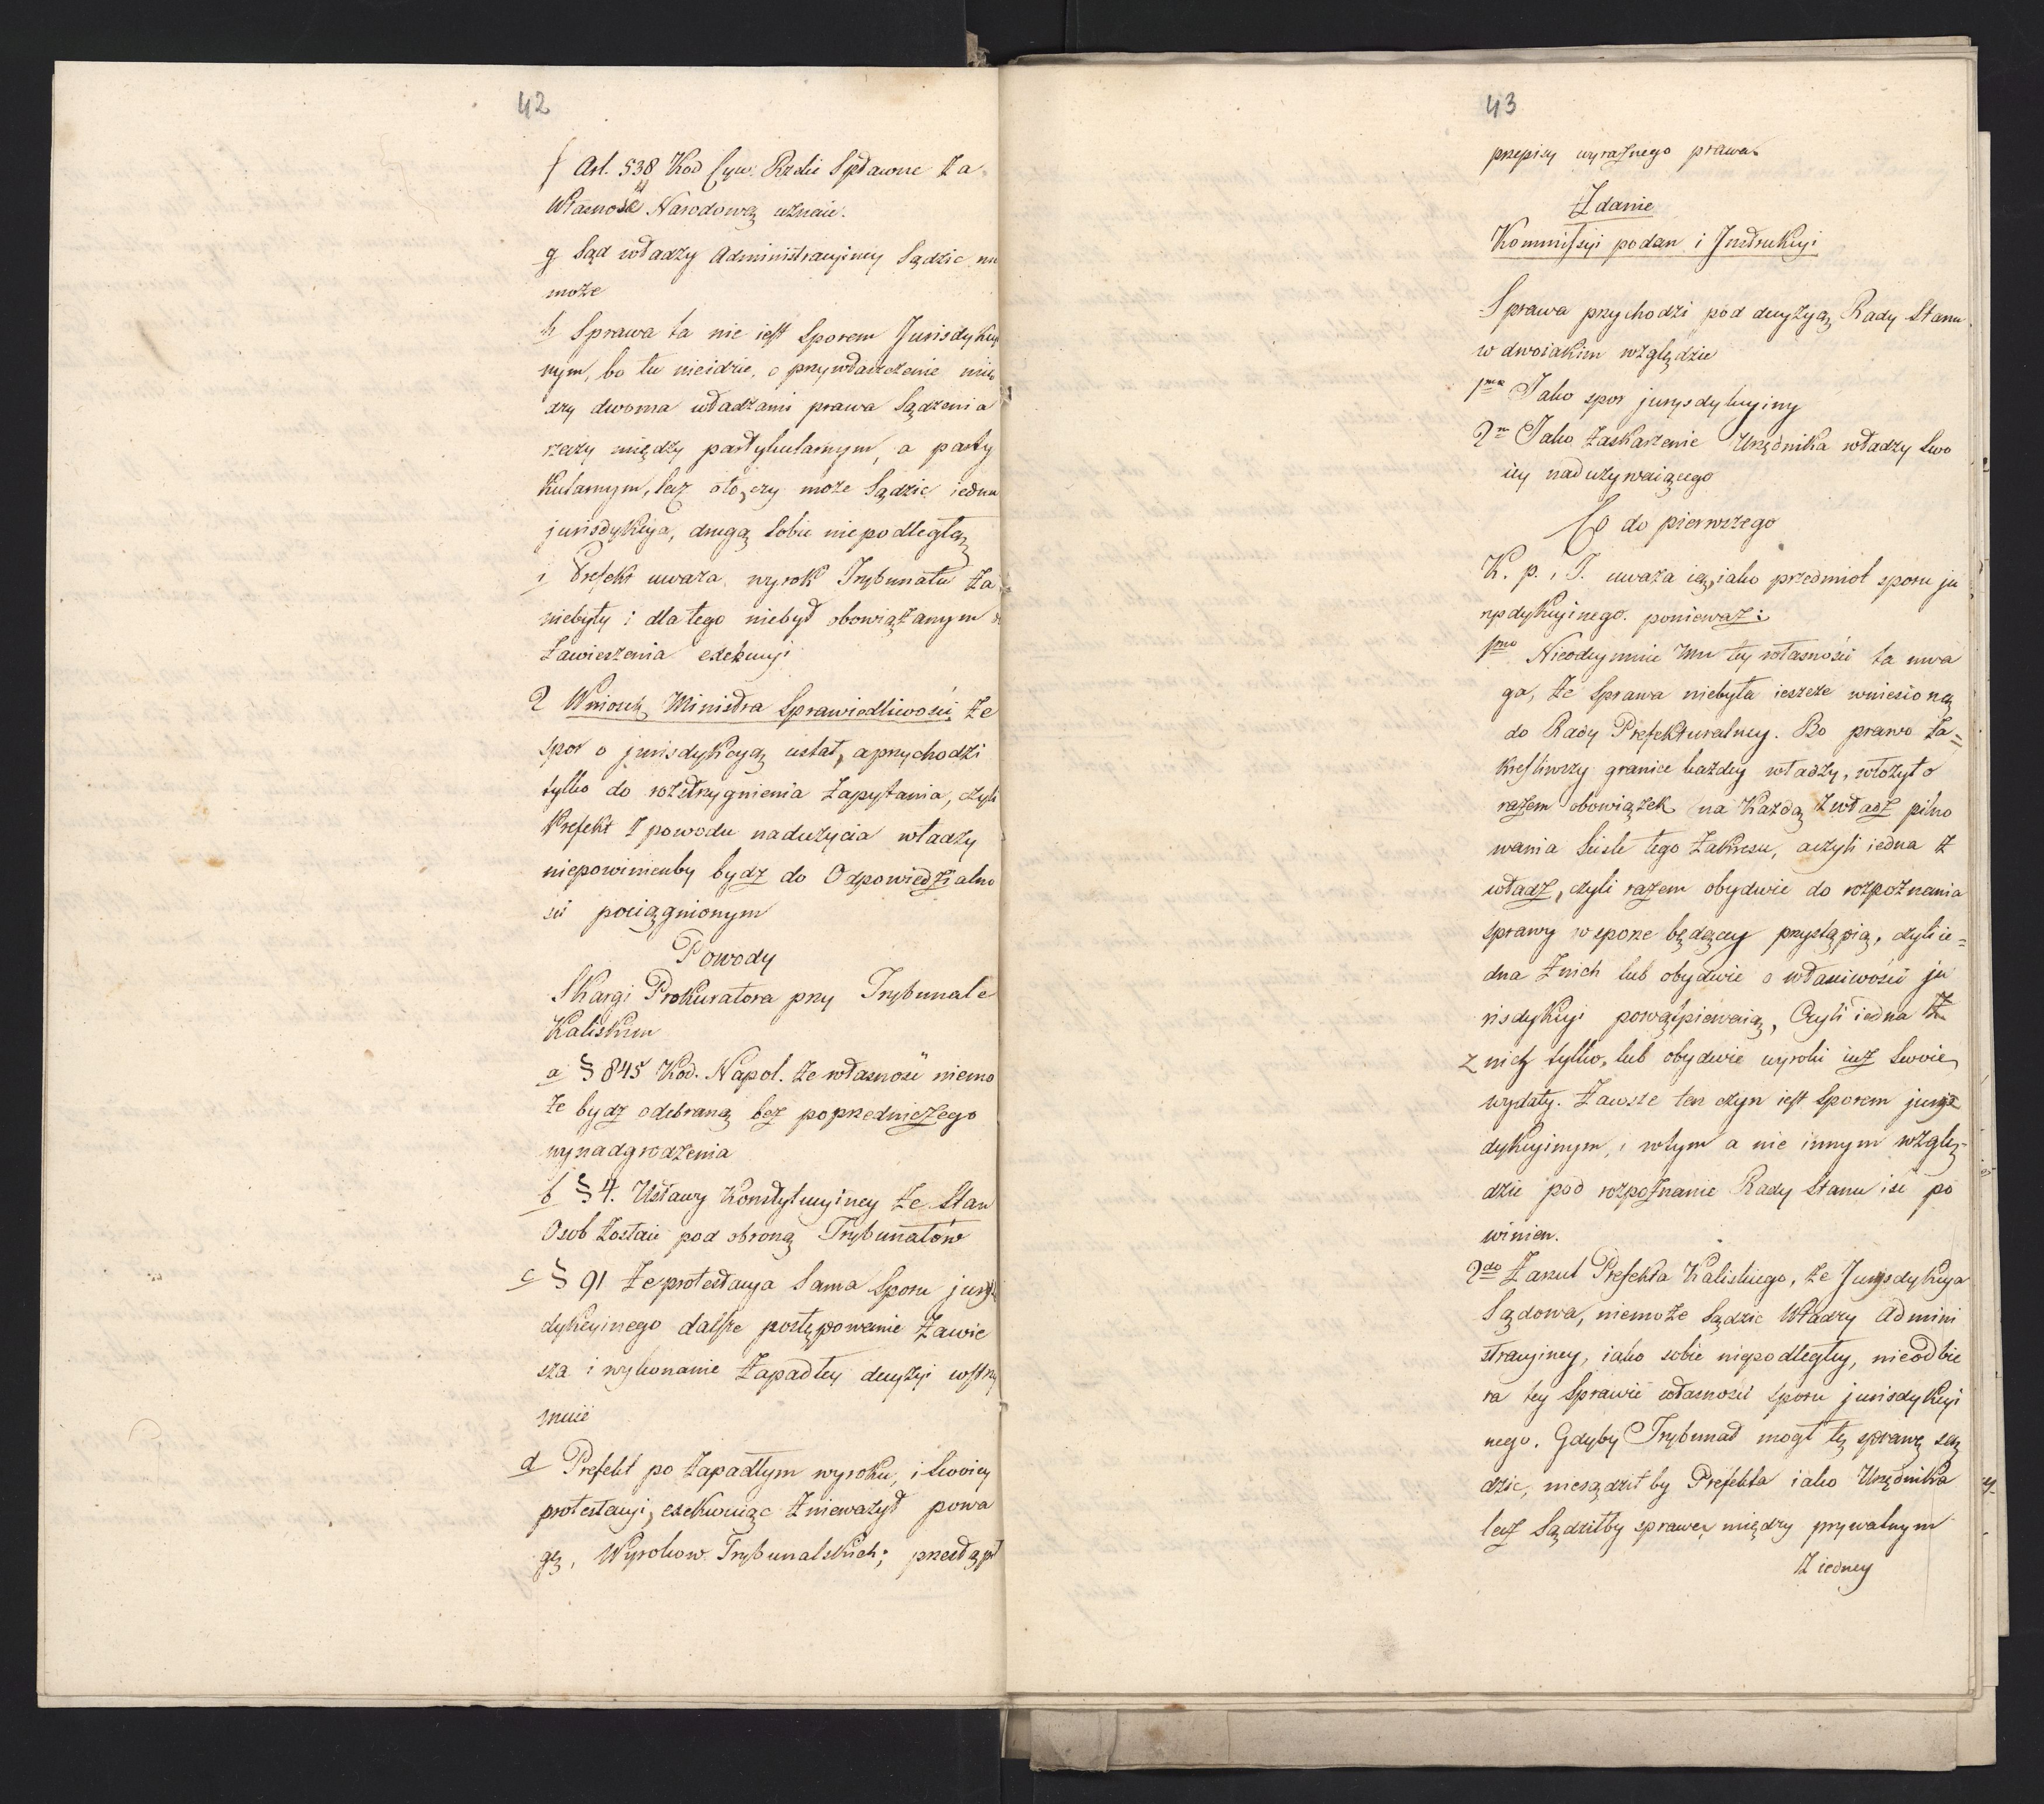 42
f Art. 538 Kod Cyw. Rzeki Spławne za
Własność Narodową uznaie.
g Sąd władzy Administracyiney Sądzic nie
może
h Sprawa ta nie iest Sporem Jurisdykcyi
nym, bo tu nieidzie, o przywłaszczenie mię
dzy dwoma władzami prawa Sądzenia
rzeczy między partykularnym, a party
kularnym, lecz oto, czy może Sądzic iedna
jurisdykcya, drugą Sobie niepodległą
i Prefekt uważa wyrok Trybunału za
niebyły i dlatego niebył obowiązanym do
Zawieszenia exekucyi
2 Wniosek Ministra Sprawiedliwości, że
spor o jurisdykcyą ustał, a przychodzi
tylko do rozstrzygnienia Zapytania, czyli
Prefekt z powodu nadużycia władzy
niepowinienby bydź do Odpowiedzialno
ści pociągnionym
Powody
Skargi Prokuratora przy Trybunale
Kaliskim
a § 845 Kod. Napol. że własność niemo
że bydź odebraną bez poprzedniczego
wynadgrodzenia
b § 4. Ustawy Konstytucyiney że Stan
Osob zostaie pod obroną Trybunałów
c § 91 że protestacya Sama Sporu jurys
dykcyinego dalsze postępowanie Zawie
sza i wykonanie Zapadłey decyzyi wstrzy
muie
d Prefekt po Zapadłym wyroku, i Swoiey
protestacyi, exekwuiąc znieważył powa
gę, Wyrokow Trybunalskich; przestąpił
43
przepisy wyraźnego prawa.
Zdanie
Kommissyi podan i Instrukcyi
Sprawa przychodzi pod decyzyą Rady Stanu
w dwoiakim względzie
1mo Jako spor jurysdykcyiny
2do Jako Zaskarżenie Urzędnika władzy Swo
iey nadużywaiącego
Co do pierwszego
K. p. i I. uważa ią, iako przedmiot sporu ju
rysdykcyinego. ponieważ:
1mo Nieodeymuie Mu tey własności ta uwa
ga, że Sprawa niebyła ieszcze wniesioną
do Rady Prefekturalney. Bo prawo Za=
kreśliwszy granice każdey władzy, włożyło
razem obowiązek na Każdą z władz pilno
wania ściśle tego Zakresu, a czyli iedna z
władz, czyli razem obydwie do rozpoznania
sprawy w sporze będącey przystąpią, czyli ie=
dna z nich lub obydwie o właściwości ju
risdykcyi powątpiewaią, Czyli iedna
z nich tylko, lub obydwie wyroki iuż Swoie
wydały. Zawsze ten czyn iest Sporem jurys
dykcyinym, i wtym a nie innym wzglę=
dzie pod rozpoznanie Rady Stanu iść po
winien.
2do Zarzut Prefekta Kaliskiego, że Jurysdykcya
Sądowa, niemoże Sądzic Władzy Admini
stracyiney, iako sobie niepodległey, nieodbie
ra tey Sprawie własności sporu jurisdykcyi
nego. Gdyby Trybunał mogł tę sprawę są
dzic, niesądził by Prefekta iako Urzędnika
lecz Sądziłby sprawę między prywatnym
Z iedney